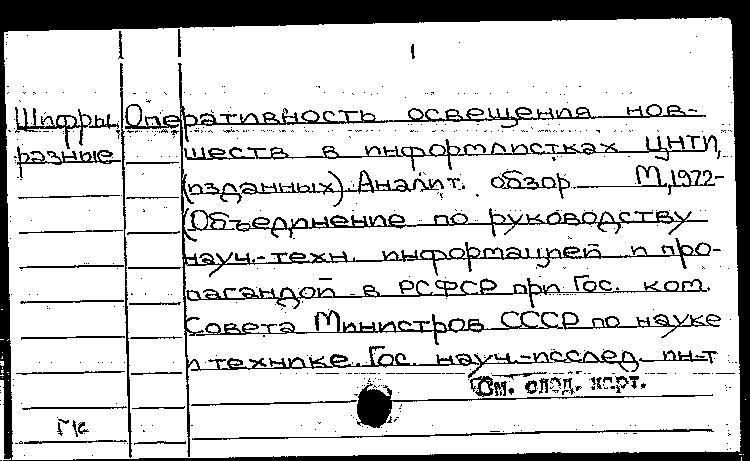 1
Шифры Оперативность освещения нов-
разные шеств в информлистках ЦНТИ,
(изданных). Аналит. обзор М., 1972-
(Объединение по руководству
науч.-техн. информацией и про-
пагандой в РСФСР при Гос. ком.
Совета Министров СССР по науке
и технике. Гос. науч.-исслед. ин-т
См. след. карт.